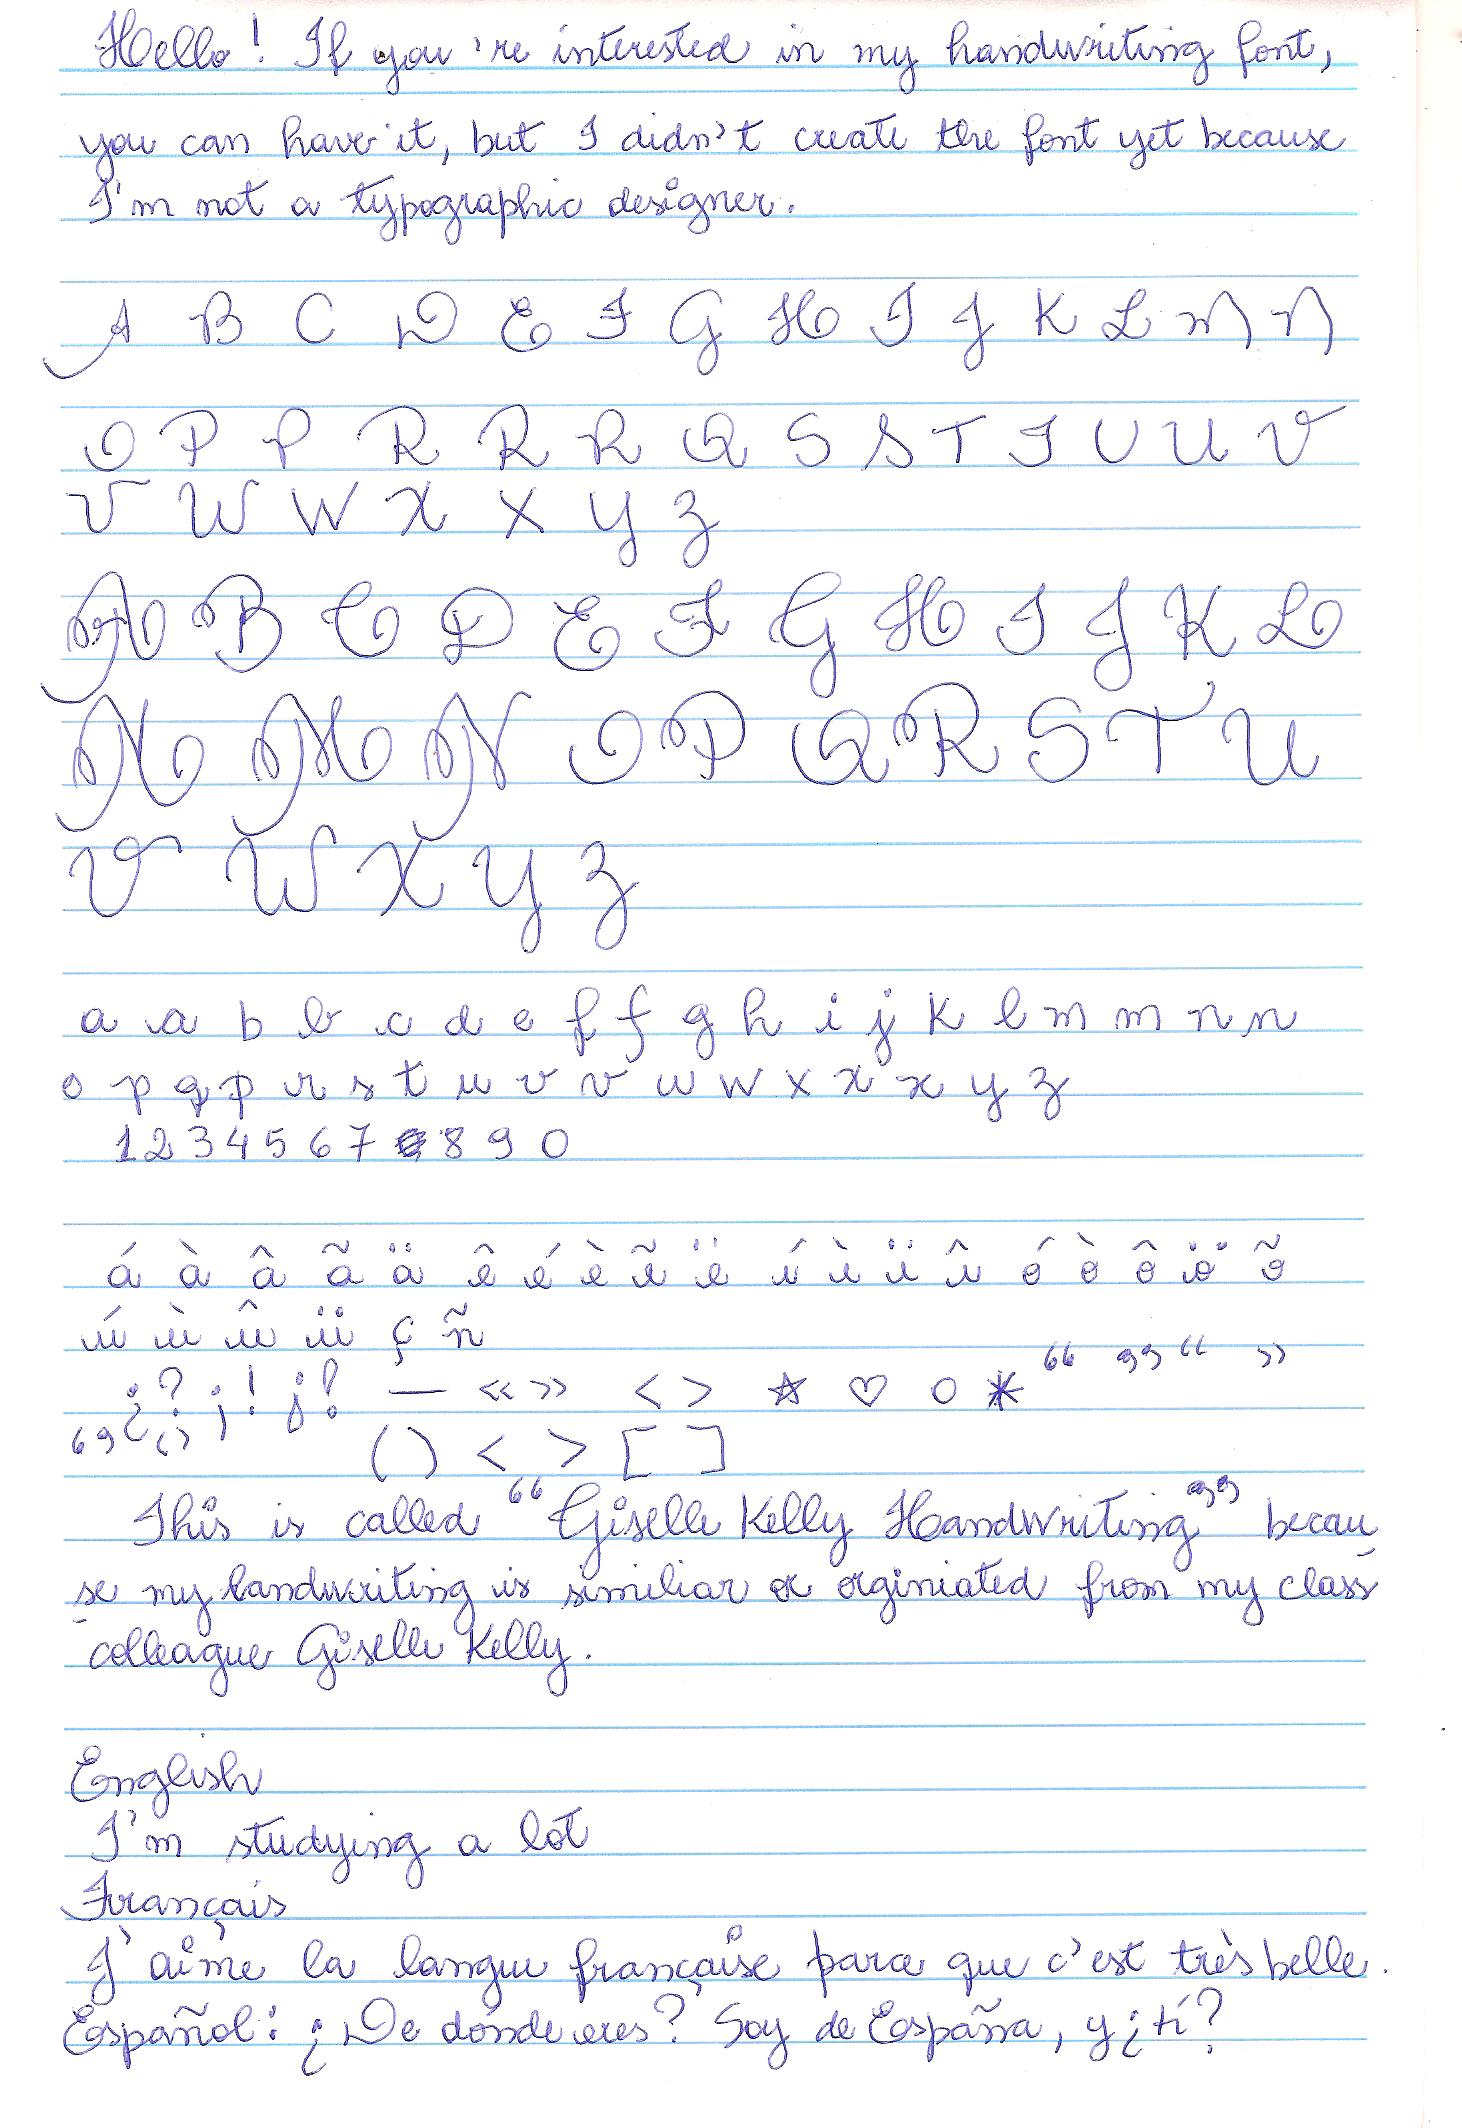 Hello! If you're interested in my handwriting font,
you can have it, but I didn't create the font yet because
I'm not a typographic designer.
A B C D E F G H I J K L M N
O P P R R R Q S S T T U U V
V W W X X Y Z
A B C D E F G H I J K L
M M N O P Q R S T U
V W X Y Z
a a b b c d e f f g h i j k l m m n n
o p q p r s t u v v w w x x x y z
1 2 3 4 5 6 7 8 9 0
á à â ã ä ê é è ẽ ë í ì ï î ó ò ô ö õ
ú ù û ü ç ñ
¿? ¡! ¡! — «» < > ☆ ♡ ○ * “ ” “ »
‘ ’ ‹ › ( ) < > [ ]
This is called “Giselle Kelly Handwriting” becau
se my handwriting is similiar or orginiated from my class
colleague Giselle Kelly.
English
I'm studying a lot
Français
J'aime la langue française parce que c'est très belle.
Español: ¿De dónde eres? Soy de España, y ¿tí?